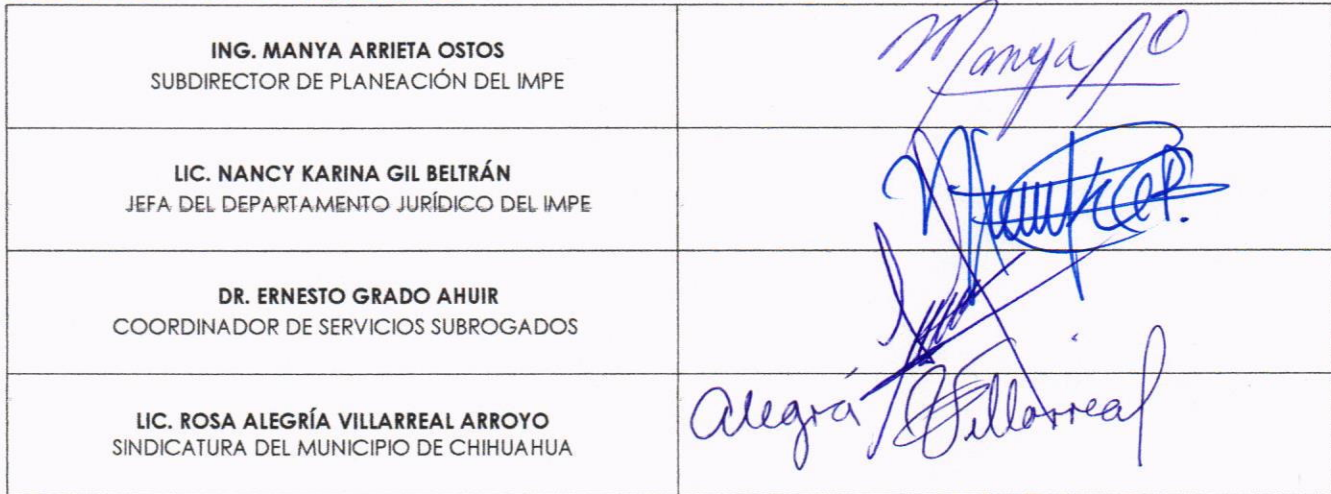 ING. MANYA ARRIETA OSTOS
SUBDIRECTOR DE PLANEACIÓN DEL IMPE
Manya AO
LIC. NANCY KARINA GIL BELTRÁN
JEFA DEL DEPARTAMENTO JURÍDICO DEL IMPE
DR. ERNESTO GRADO AHUIR
COORDINADOR DE SERVICIOS SUBROGADOS
LIC. ROSA ALEGRÍA VILLARREAL ARROYO
SINDICATURA DEL MUNICIPIO DE CHIHUAHUA
Alegría Villarreal